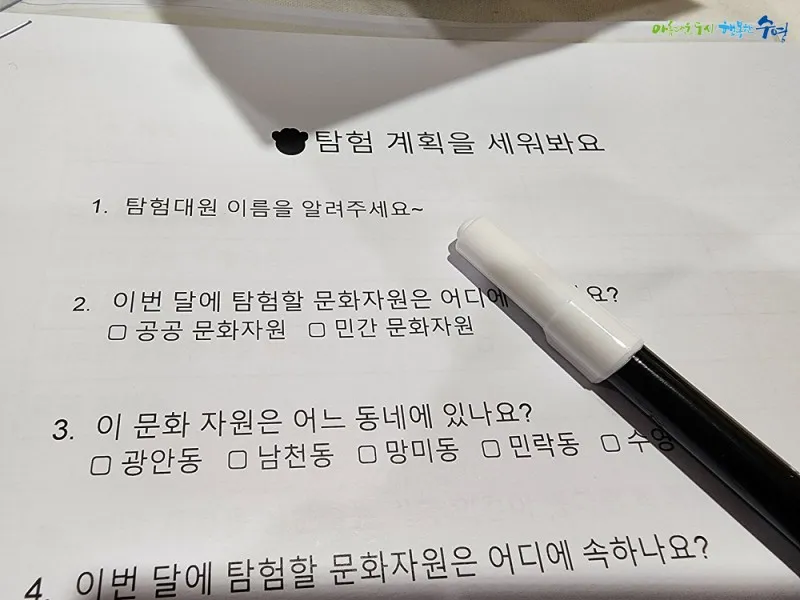 행복한 수영
탐험 계획을 세워봐요
1. 탐험대원 이름을 알려주세요~
2. 이번 달에 탐험할 문화자원은 어디에 요?
▢ 공공 문화자원 ▢ 민간 문화자원
3. 이 문화 자원은 어느 동네에 있나요?
▢ 광안동 ▢ 남천동 ▢ 망미동 ▢ 민락동 ▢ 수영
4. 이번 달에 탐험할 문화자원은 어디에 속하나요?